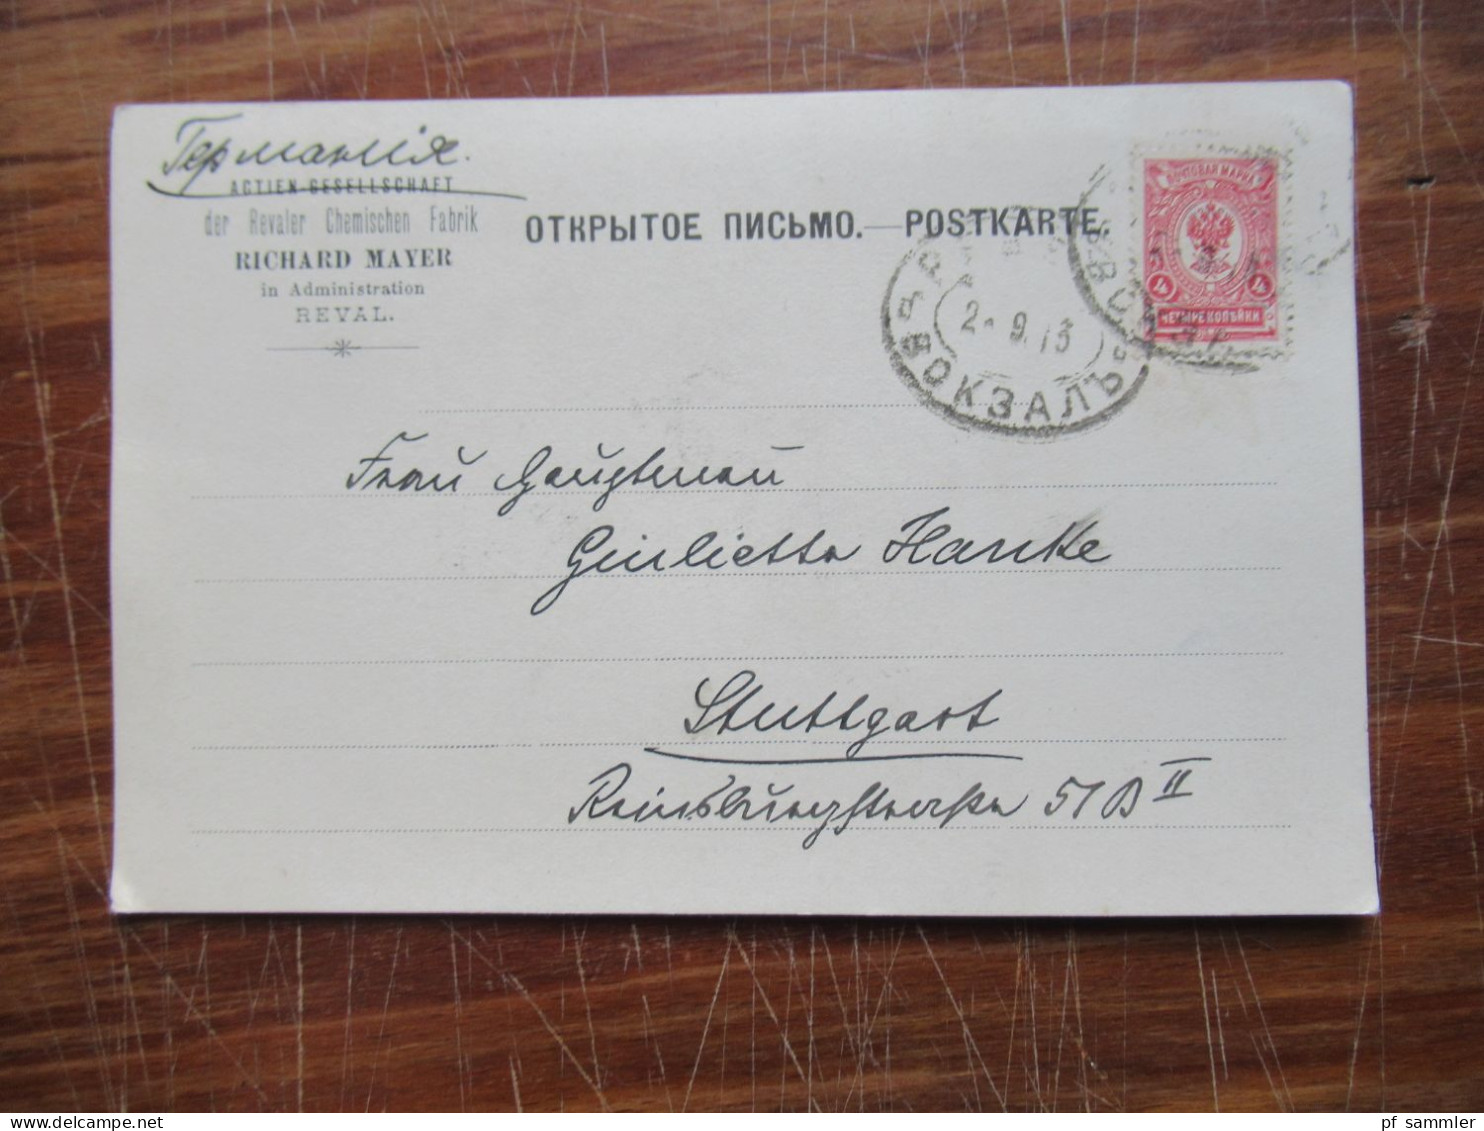 Германія.
ACTIEN-GESELLSCHAFT
der Revaler Chemischen Fabrik
RICHARD MAYER
in Administration
REVAL.
ОТКРЫТОЕ ПИСЬМО.—POSTKARTE.
ПОЧТОВАЯ МАРКА
4 4
ЧЕТЫРЕ КОПѢЙКИ
2-9.13
ВОКЗАЛЪ
Frau Hauptmann
Giulietta Hancke
Stuttgart
Reinsburgstrasse 51 B II
pf sammler